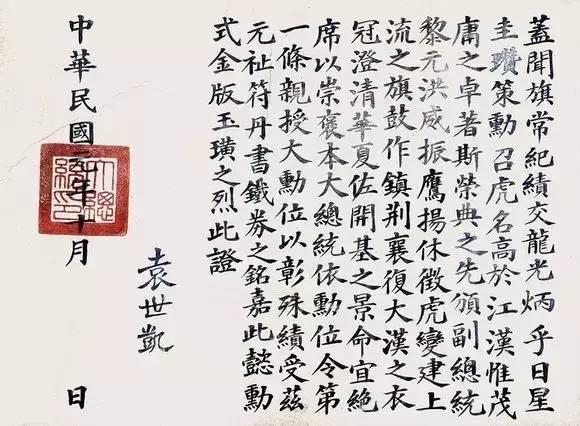 蓋聞旗常紀績交龍光炳乎日星
圭瓚策勳召虎名高於江漢惟茂
庸之卓著斯榮典之先頒副總統
黎元洪威振鷹揚休徵虎變建上
流之旗鼓作鎮荊襄復大漢之衣
冠澄清華夏佐開基之景命宜絕
席以崇褒本大總統依勳位令第
一條親授大勳位以彰殊績受茲
元祉符丹書鐵券之銘嘉此懿勳
式金版玉璜之烈此證
袁世凱
中華民國年十月 日